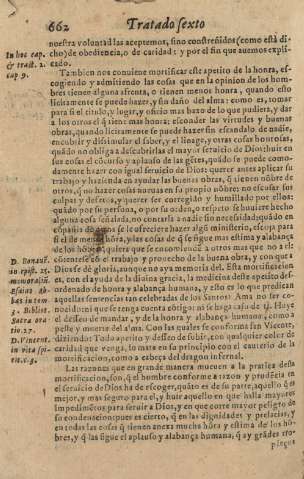 662 Tratado sexto
nuestra voluntad las aceptemos, sino constreñidos (como está di-
In hoc cap.
cho) de obediencia, o de caridad: y por el fin que auemos expli-
& tract. 2.
cado.
cap 9.
Tambien nos conuiene mortificar este apetito de la honra, es-
cogiendo y admitiendo las cosas que en la opinion de los hom-
bres tienen alguna afrenta, o tienen menos honra, quando esto
licitamente se puede hazer, y sin daño del alma: como es, tomar
para si el titulo, y lugar, y oficio mas baxo de lo que pudiera, y dar
a los otros el q̃ tiene mas honra: esconder las virtudes y buenas
obras, quando licitamente se puede hazer sin escandalo de nadie,
encubrir y dissimular el saber, y el linage, y otras cosas honrosas,
quãdo no obliga a descubrirlas el mayor seruicio de Dios: huir en
sus cosas el cõcurso y aplauso de las gẽtes, quãdo se puede como-
damente hazer con igual seruicio de Dios: querer antes aplicar su
trabajo y hazienda en ayudar las buenas obras, q̃ tienen nõbre de
otros, q̃ no hazer cosas nueuas en su propio nõbre: no escusar sus
culpas y defetos, y querer ser corregido y humillado por ellos:
quãdo por su persona, o por su orden, o respeto se huuiere hecho
alguna cosa señalada, no contarla a nadie sin necessidad: quãdo en
se le ofreciere hazer algũ ministerio, escoja para
si el de menos y las cosas de q̃ se sigue mas estima y alabança
de los hõbres, quiere que se encomienden a otros mas que no a el:
D. Bonauẽ.
cõtentese cõ el trabajo y prouecho de la buena obra, y con que a
io opist. 25.
Dios se dè gloria, aunque no aya memoria del. Esta mortificacion
memorialiũ.
es, con el ayuda de la diuina gracia, la medicina deste apetito des-
ordenado de honra y alabança humana, y esto es lo que predican
bas in tom.
aquellas sentencias tan celebradas de los Santos: Ama no ser co-
5. Bibliot.
nocido: ni que se tenga cuenta contigo: assi se haga caso de ti. Huye
Sacra ora-
el desseo de mandar, y de la honra y alabança humana, como a
tio 27.
peste y muerte del alma. Con las quales se conforma san Vicente,
D. Vincent.
diziendo: Todo apetito y desseo de subir, con qualquier color de
in vita spi-
caridad que venga, lo mata en su principio con el cauterio de la
rit. c. 9.
mortificacion, como a cabeça del dragon infernal.
Las razones que en grande manera mueuen a la pratica desta
mortificacion, son, q̃ el hombre conforme a razon y prudẽcia en
el seruicio de Dios ha de escoger, quãto es de su parte, aquello q̃ es
mejor, y mas seguro para el, y huir aquello en que halla mayores
impedimẽtos para seruir a Dios, y en que corre mayor peligro de
su condenacion: pues es cierto, q̃ en las dignidades y prelacias, y
en todas las cosas q̃ tienen anexa mucha hõra y estima de los hõ-
bres, y q̃ las sigue el aplauso y alabança humana, q̃ ay grãdes tro-
pieços